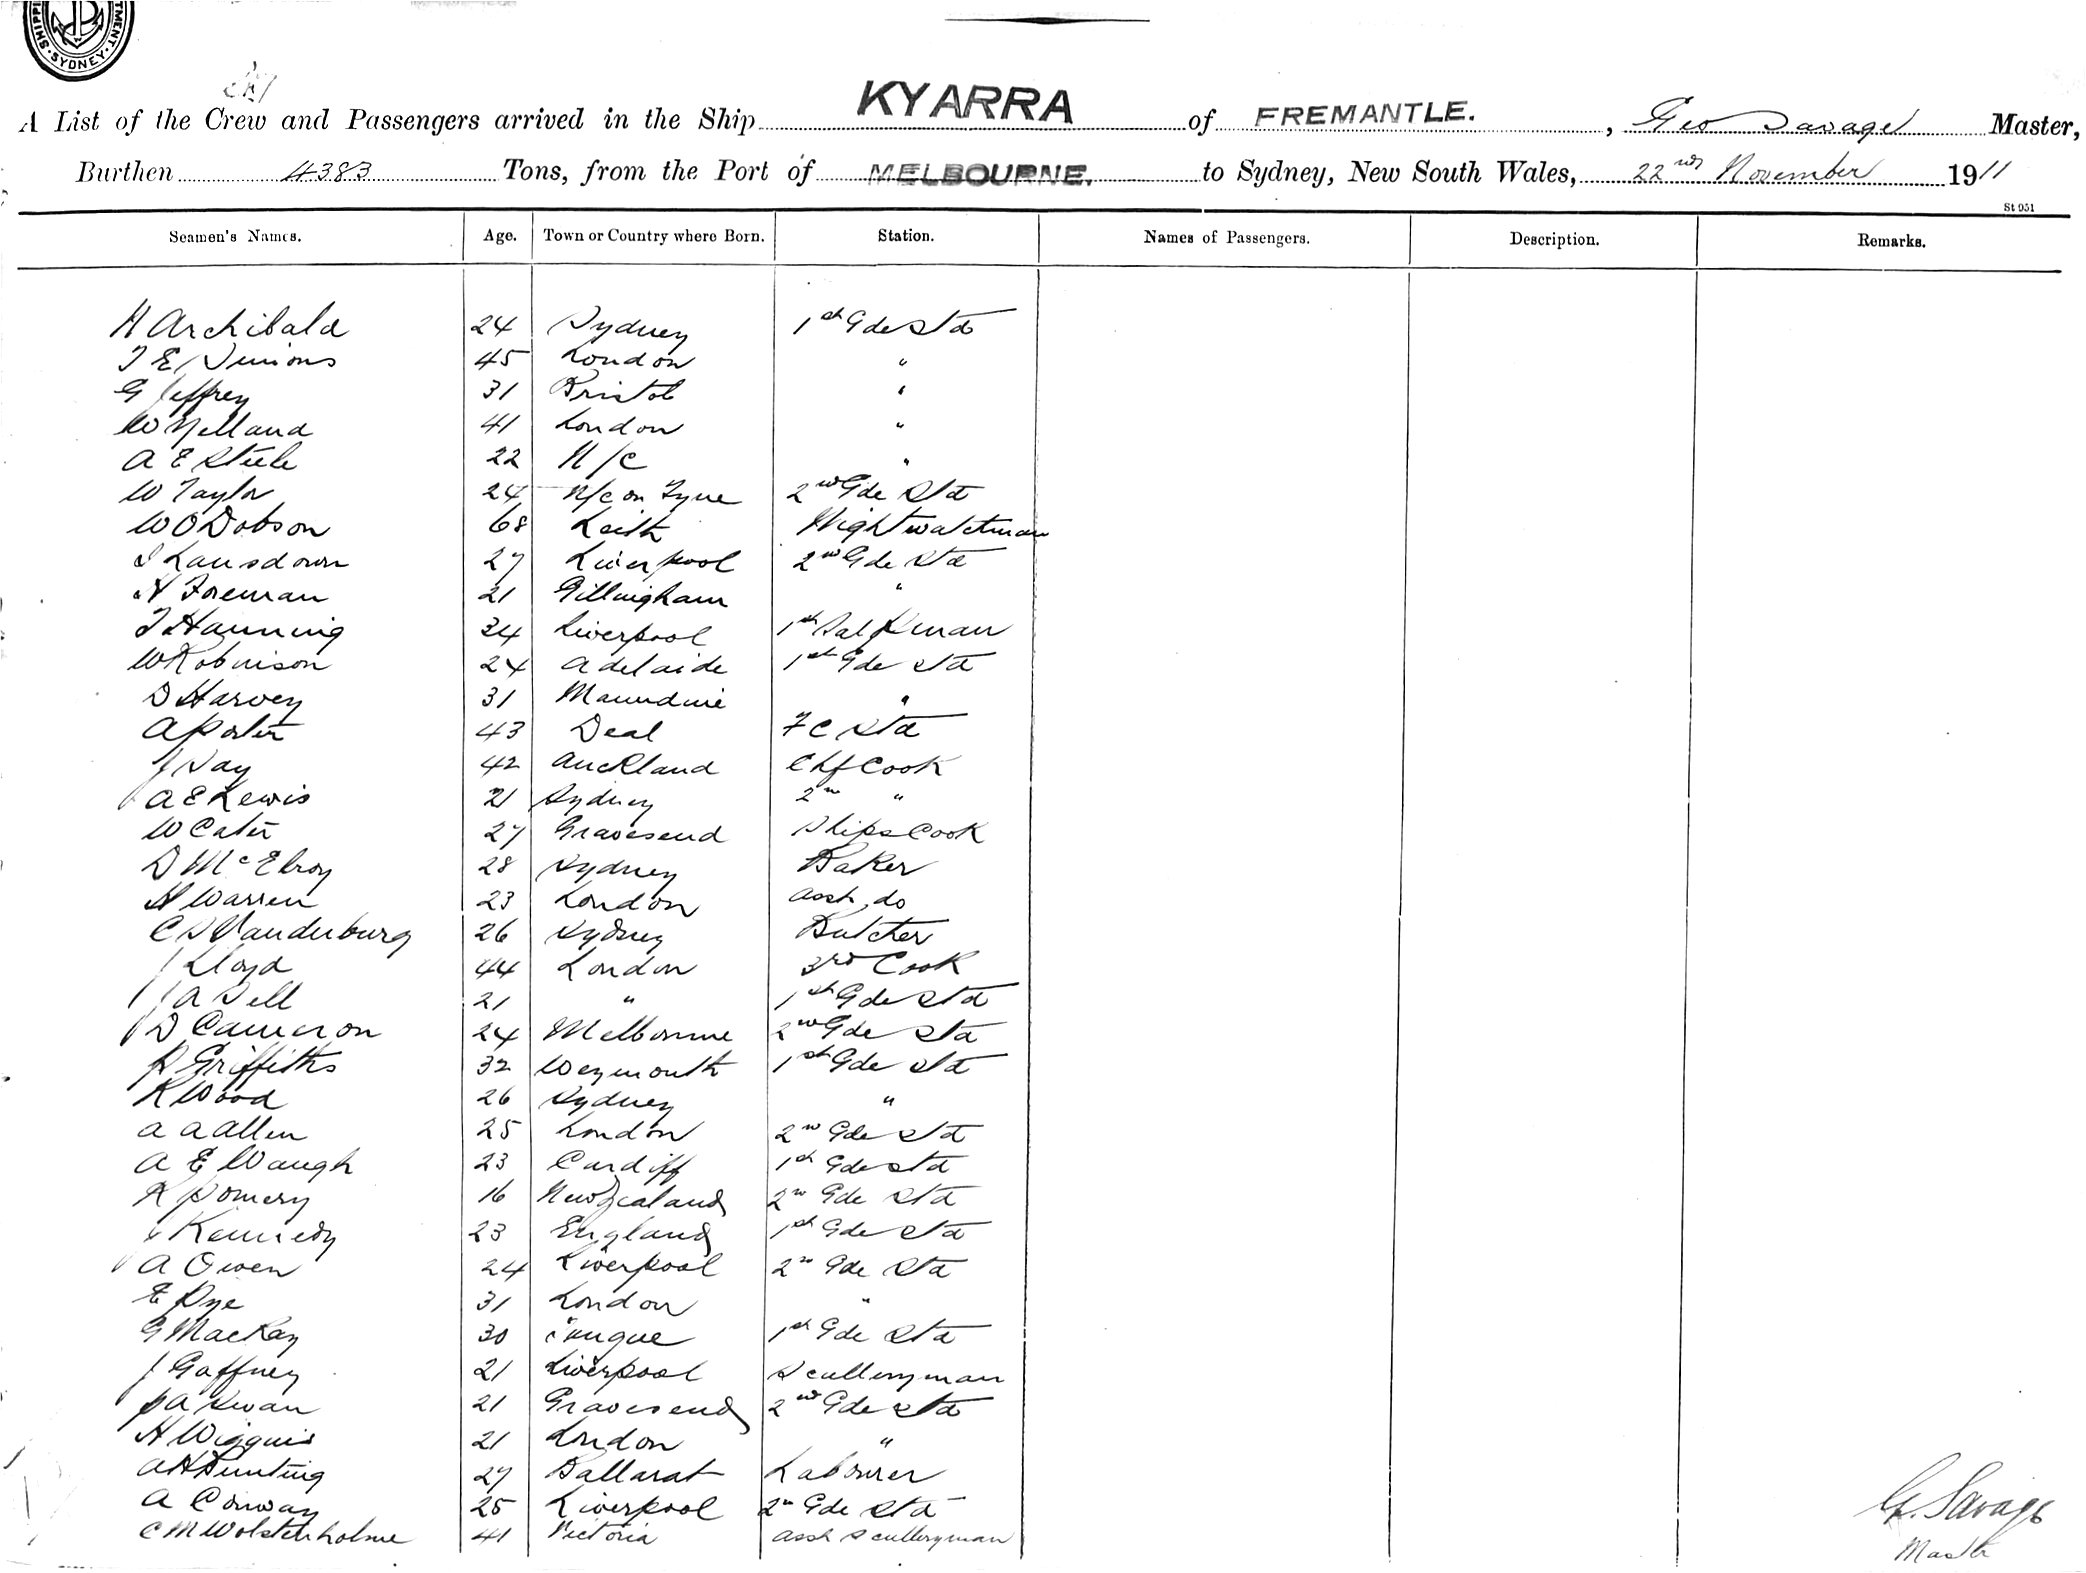 SHIPPI TMENT. SYDNEY.
A List of the Crew and Passengers arrived in the Ship KYARRA of FREMANTLE. , Geo Savage Master,
Burthen 4383 Tons, from the Port of MELBOURNE. to Sydney, New South Wales, 22nd November 1911
St 951
Seamen's Names. Age. Town or Country where Born. Station. Names of Passengers. Description. Remarks.
H Archibald 24 Sydney 1st Gde Std
T E Simons 45 London "
G Jeffrey 31 Bristol "
W Yelland 41 London "
A E Steele 22 N/C "
W Taylor 24 N/C on Tyne 2nd Gde Std
W O Dobson 68 Leith Nightwatchman
Lansdown 27 Liverpool 2nd Gde Std
H Foreman 21 Gillingham "
T Hanning 34 Liverpool 1st Sal Pman
W Robinson 24 Adelaide 1st Gde Std
D Harvey 31 "
A Porter 43 Deal F C Std
J Day 42 Auckland Chf Cook
A E Lewis 21 Sydney 2nd "
W Cater 27 Gravesend Ships Cook
D McElroy 28 Sydney Baker
H Warren 23 London Asst do
C Vanderburg 26 Sydney Butcher
J Lloyd 44 London 3rd Cook
J A Sell 21 " 1st Gde Std
D Cameron 24 Melbourne 2nd Gde Std
R Griffiths 32 Weymouth 1st Gde Std
R Wood 26 Sydney "
A A Allen 25 London 2nd Gde Std
A E Waugh 23 Cardiff 1st Gde Std
R Pomery 16 New Zealand 2nd Gde Std
Kennedy 23 England 1st Gde Std
A Owen 24 Liverpool 2nd Gde Std
E Pye 31 London "
G MacKay 30 Tongue 1st Gde Std
J Gaffney 21 Liverpool Sculleryman
A Swan 21 Gravesend 2nd Gde Std
H Wiggins 21 London "
A H Bunting 27 Ballarat Labourer
A Conway 25 Liverpool 2nd Gde Std
C M Wolstenholme 41 Victoria Asst Sculleryman
G. Savage
Master